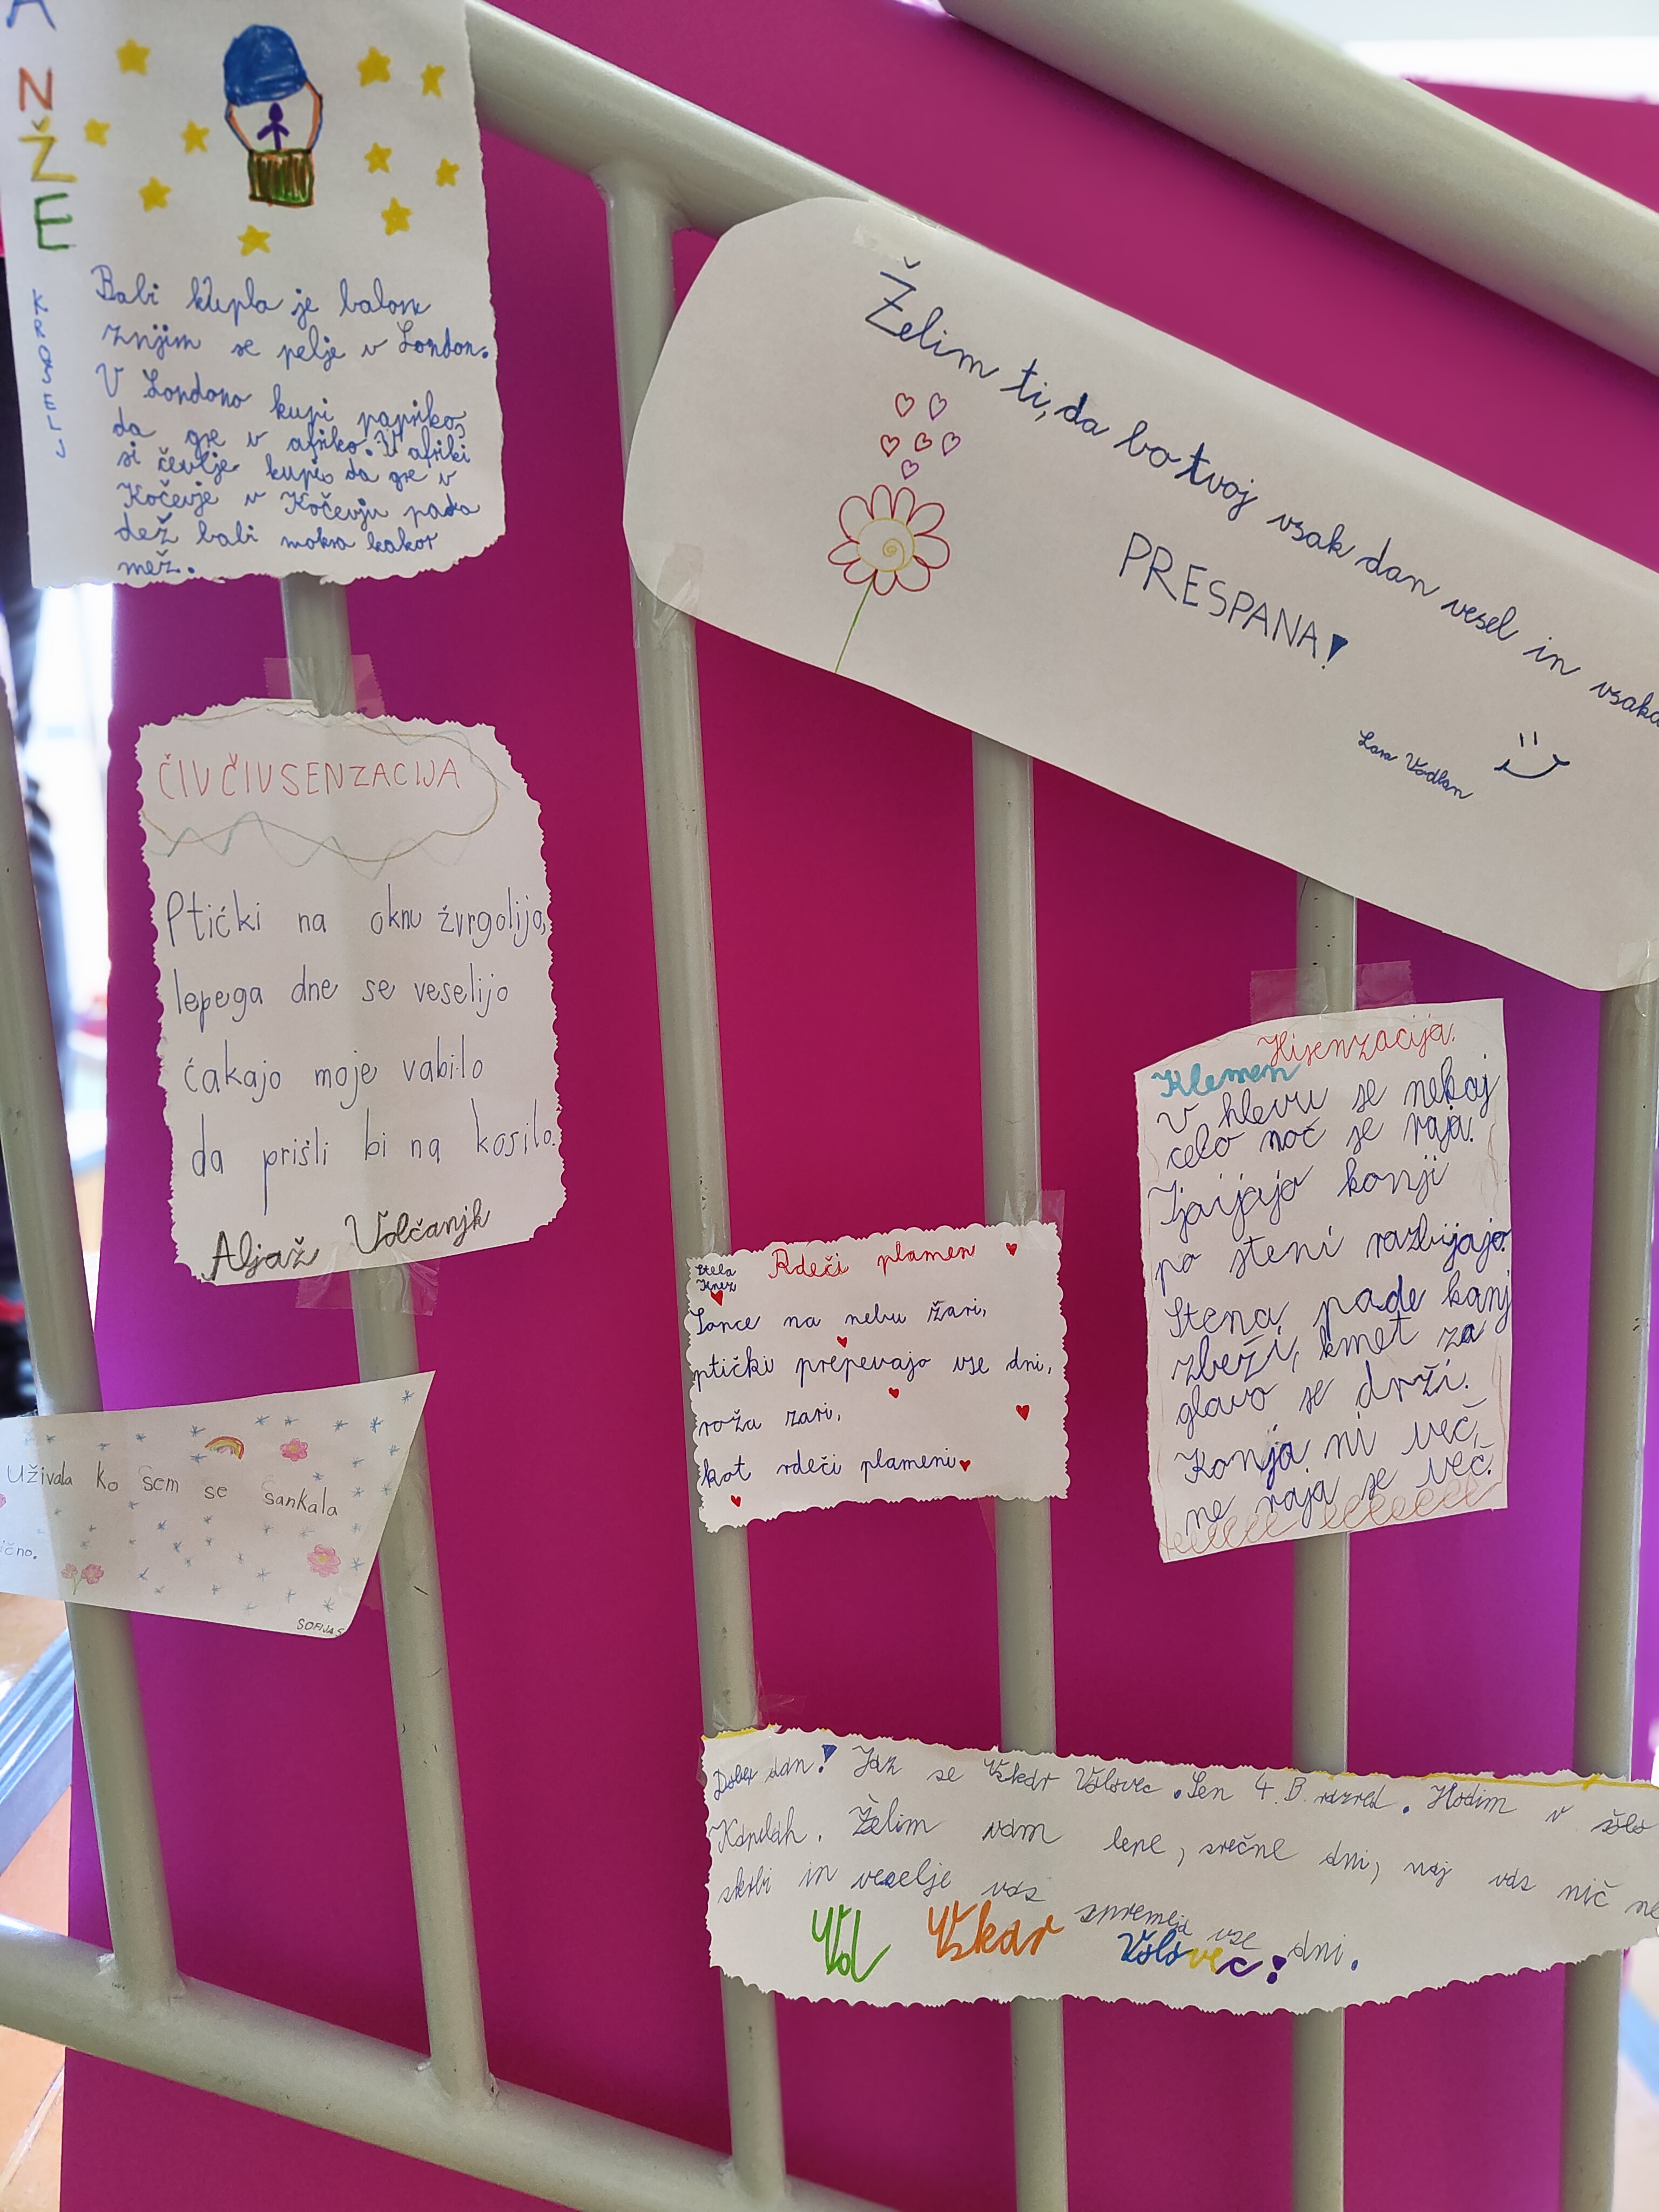 A
N
Ž
E
KROŠELJ
Babi kupla je balon
znjim se pelje v London.
V Londono kupi papriko,
da gre v afriko. V afriki
si čevlje kupi, da gre v
Kočevje v Kočevju pada
dež babi mokra kakor
mež.
Želim ti, da bo tvoj vsak dan vesel in vsaka
PRESPANA!
Lara Vodlan
ČIVČIVSENZACIJA
Ptićki na oknu žvrgolijo,
lepega dne se veselijo
ćakajo moje vabilo
da prišli bi na kosilo.
Aljaž Volčanjk
Hisenzacija.
Klemen
V hlevu se nekaj
celo noč se raja.
Izaijajo konji
po steni razbijajo.
Stena pade konj
zbeži, kmet za
glavo se drži.
Konja ni več,
ne raja se več.
Stela
Knez
Rdeči plamen
Sonce na nebu žari,
ptički prepevajo vse dni,
roža zari,
kot rdeči plameni
Uživala ko sem se sankala
ično.
SOFIJA S
Dober dan! Jaz se Oskar Volovec. Sen 4. B razred. Hodim v šolo
Kapelah. Želim vam lepe, srečne dni, naj vas nič ne
skrbi in veselje vas spremeja vse dni.
Od Oskar Volovec!